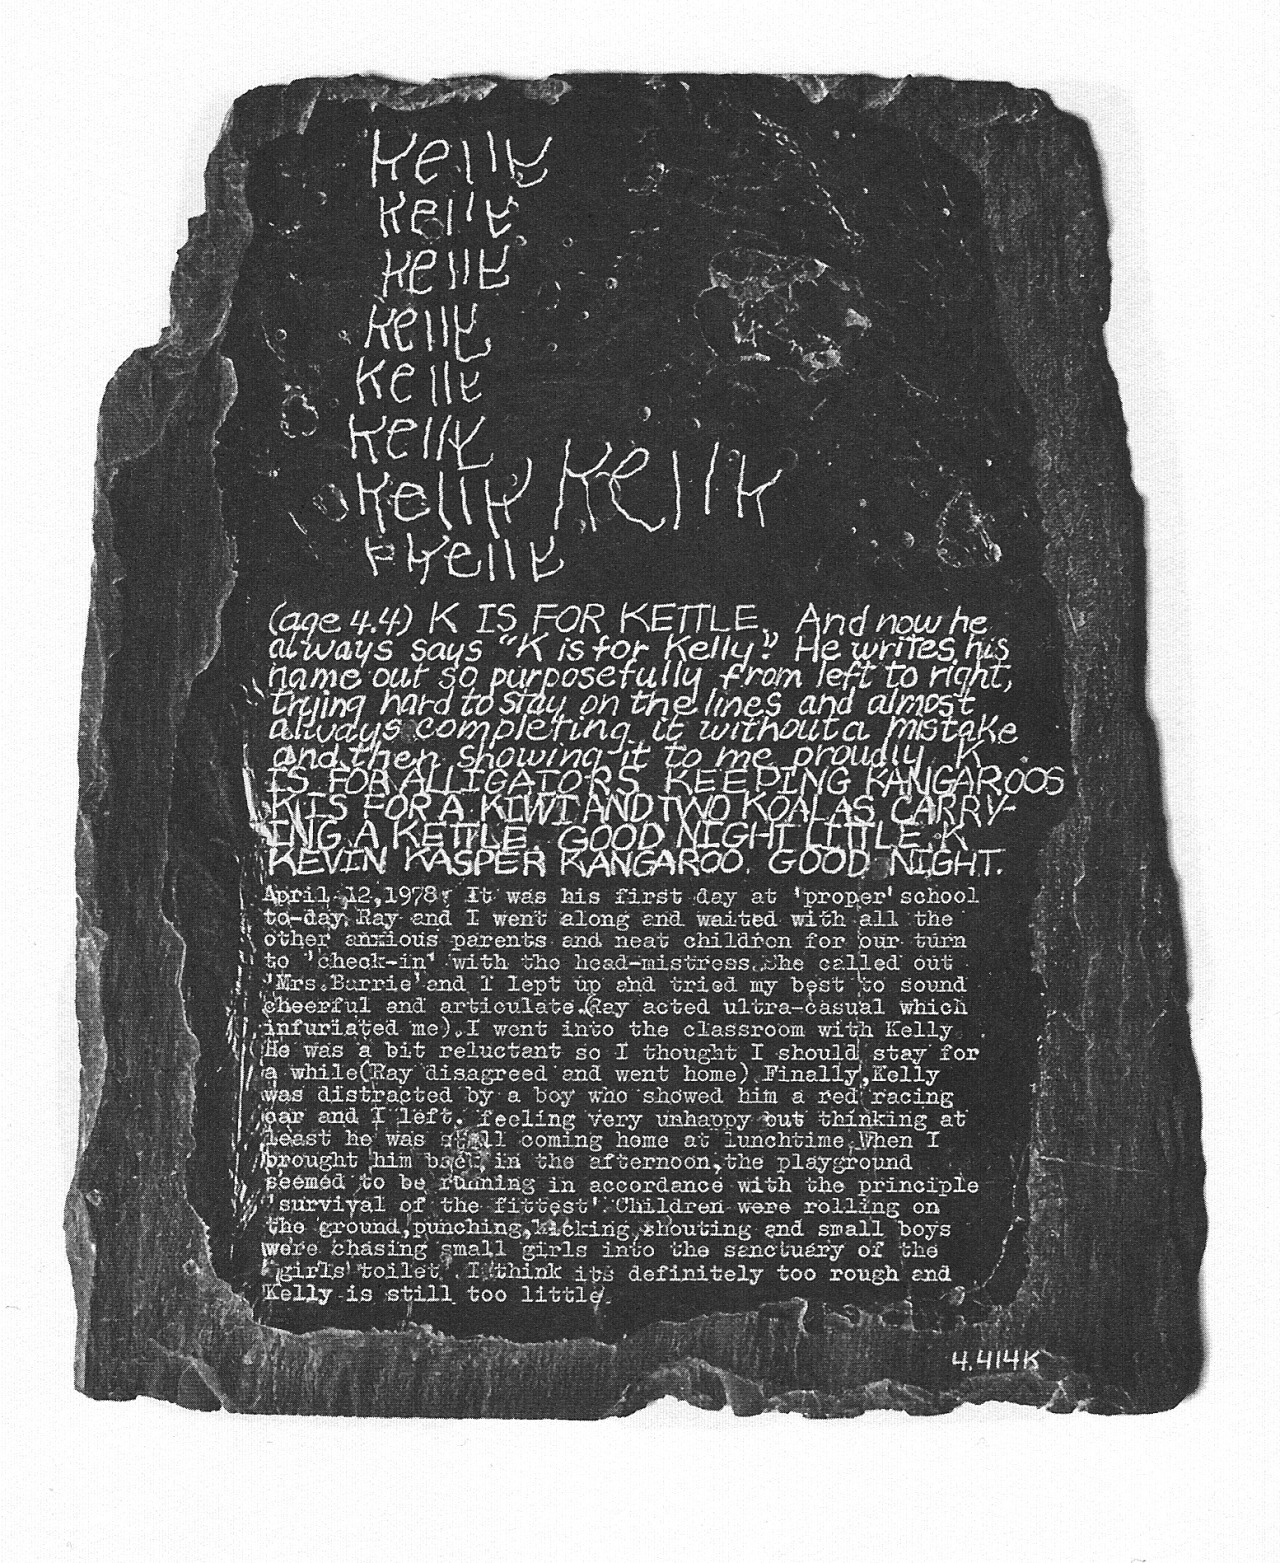 Kelly
Kelly
Kelly
Kelly
Kelly
Kelly
Kelly Kelly
Kelly
(age 4.4) K IS FOR KETTLE. And now he
always says "K is for Kelly." He writes his
name out so purposefully from left to right,
trying hard to stay on the lines and almost
always completing it without a mistake
and then showing it to me proudly. K
IS FOR ALLIGATORS KEEPING KANGAROOS
K IS FOR A KIWI AND TWO KOALAS CARRY-
ING A KETTLE. GOOD NIGHT LITTLE K
KEVIN KASPER KANGAROO. GOOD NIGHT.
April 12,1978: It was his first day at 'proper' school
to-day. Ray and I went along and waited with all the
other anxious parents and neat children for our turn
to 'check-in' with the head-mistress. She called out
'Mrs.Barrie' and I lept up and tried my best to sound
cheerful and articulate.(Ray acted ultra-casual which
infuriated me).I went into the classroom with Kelly.
He was a bit reluctant so I thought I should stay for
a while(Ray disagreed and went home) Finally,Kelly
was distracted by a boy who showed him a red racing
car and I left. feeling very unhappy but thinking at
least he was still coming home at lunchtime.When I
brought him back in the afternoon,the playground
seemed to be running in accordance with the principle
'survival of the fittest'. Children were rolling on
the ground,punching,kicking,shouting and small boys
were chasing small girls into the sanctuary of the
'girls' toilet'. I think its definitely too rough and
Kelly is still too little.
4.414K